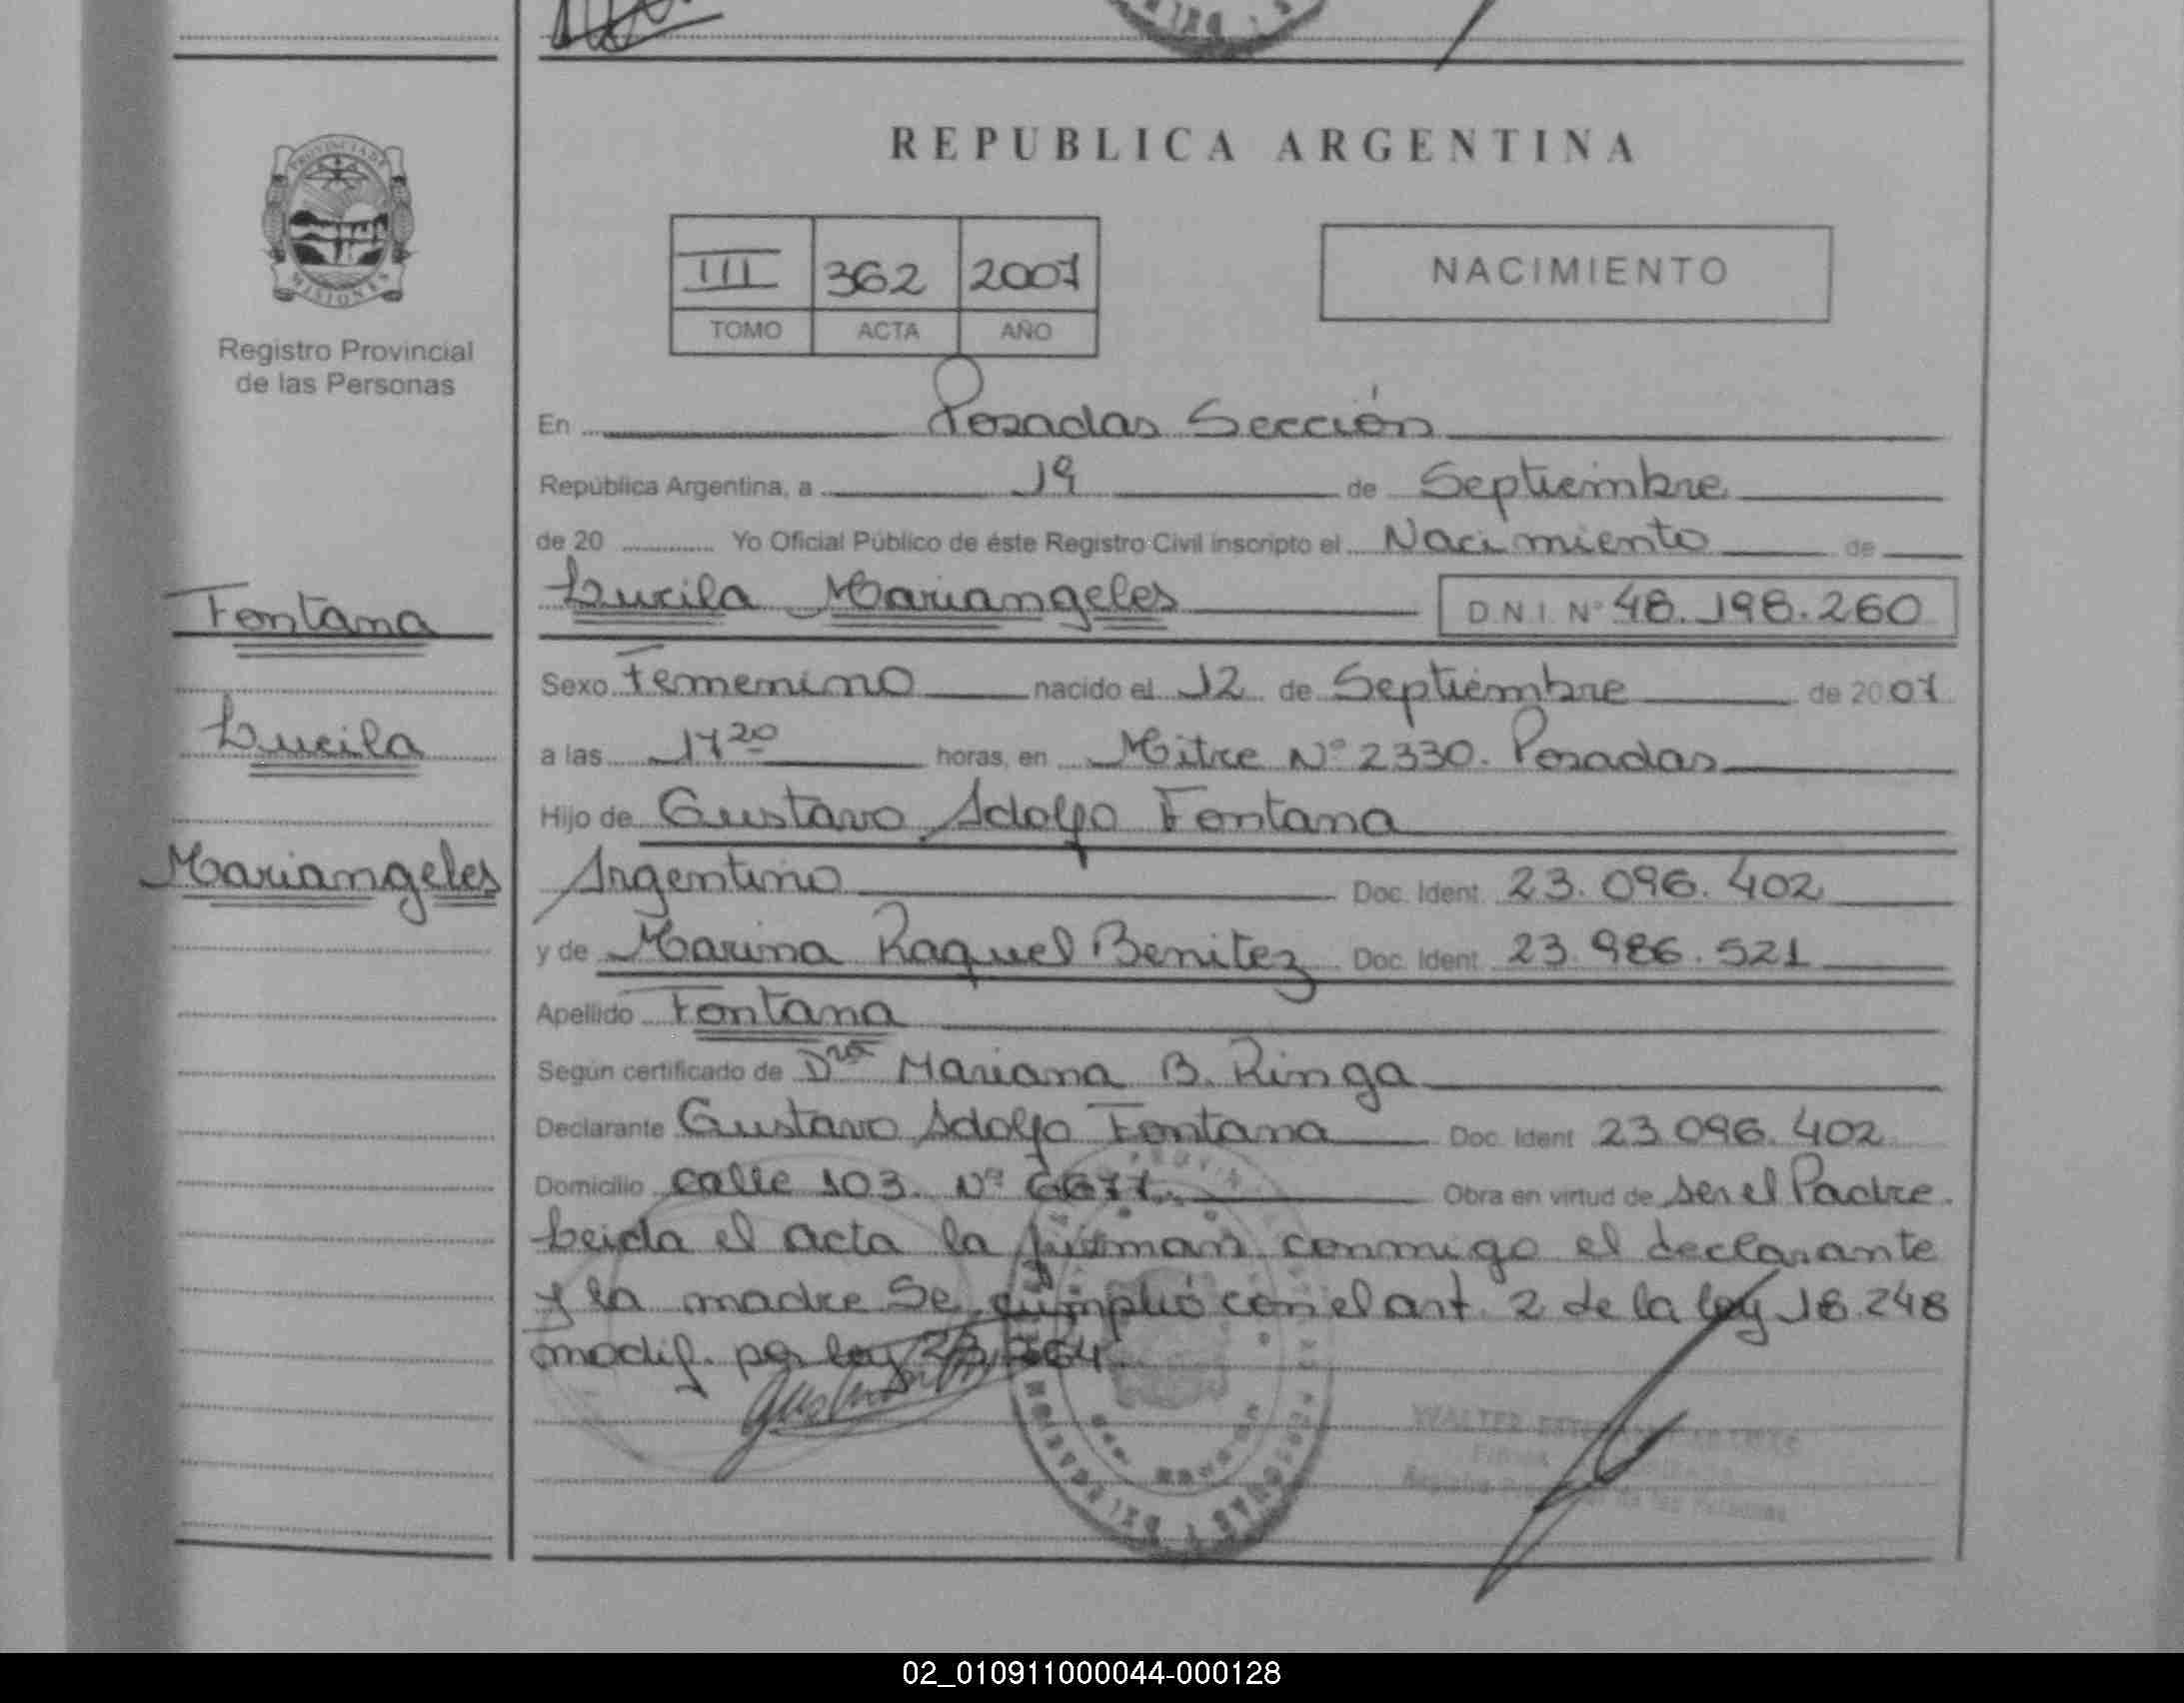 REPUBLICA ARGENTINA
PROVINCIA DE
MISIONES
Registro Provincial
de las Personas
III 362 2007
TOMO ACTA AÑO
NACIMIENTO
En Posadas Sección
República Argentina, a 19 de Septiembre
de 20 Yo Oficial Público de éste Registro Civil inscripto el Nacimiento de
Fontana
Lucila Mariangeles D.N.I. Nº 48.198.260
Sexo Femenino nacido el 12 de Septiembre de 20 07
Lucila
a las 17 20 horas, en Mitre Nº 2330. Posadas
Hijo de Gustavo Adolfo Fontana
Mariangeles
Argentino Doc. Ident. 23.096.402
y de Marina Raquel Benitez Doc. Ident. 23.986.521
Apellido Fontana
Según certificado de Dra Mariana B. Ringa
Declarante Gustavo Adolfo Fontana Doc. Ident. 23.096.402
Domicilio calle 103. Nº 6677. Obra en virtud de ser el Padre.
Leida el acta la firman conmigo el declarante
y la madre Se cumplió con el art. 2 de la ley 18.248
modif. por ley 23.264.
WALTER
Registro Provincial de las Personas
02_010911000044-000128